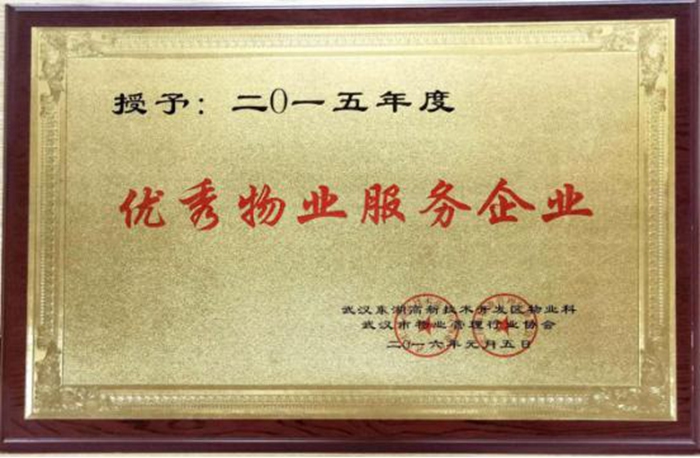 授予：二0一五年度
优秀物业服务企业
武汉东湖高新技术开发区物业科
武汉市物业管理行业协会
二0一六年元月五日